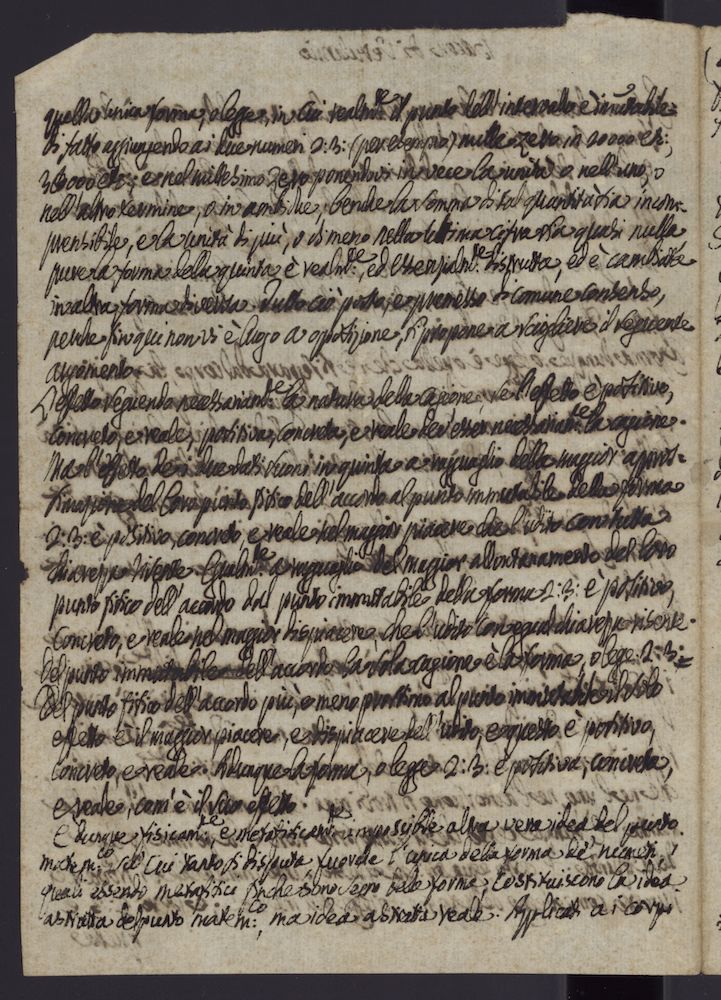 quella unica forma, o legge, in cui realm.te il punto dell'intervallo è immutabile:
di fatto aggiungendo ai due numeri 2:3: (per esempio) mille zero in 20000 etc:,
30000 etc:, e nel millesimo zero ponendovi in vece la unità o nell'uno, o
nell'altro termine, o in ambidue, benche la somma di tal quantità sia incom-
prensibile, e la unità di più, o di meno nella ultima cifra sia quasi nulla
pure la forma della quinta è realm.te, ed essenzialm.te distrutta, ed è cambiata
in altra forma diversa. Tutto ciò posto, e premesso di comune consenso,
perche fin qui non vi è luogo a opposizione, si propone a sciogliere il seguente
argomento.
L'effetto seguendo necessariam.te la natura della cagione, se l'effetto è positivo,
concreto, e reale, positiva, concreta, e reale dev'esser necessariam.te la cagione.
Ma l'effetto de i due dati suoni in quinta a ragguaglio della maggior appros-
simazione del loro punto fisico dell'accordo al punto immutabile della forma
2:3: è positivo, concreto, e reale nel maggior piacere che l'udito con tutta
chiarezza risente. Egualm.te a ragguaglio del maggior allontanamento del loro
punto fisico dell'accordo dal punto immutabile della forma 2:3: è positivo,
concreto, e reale nel maggior dispiacere che l'udito con egual chiarezza risente.
Del punto immutabile dell'accordo la sola cagione è la forma, o legge 2:3:=
Del punto fisico dell'accordo più, o meno prossimo al punto immutabile il solo
effetto è il maggior piacere, e dispiacere dell'udito, e questo è positivo,
concreto, e reale. Adunque la forma, o legge 2:3: è positiva, concreta,
e reale, com'è il suo effetto.
È dunque fisicam.te, e metafisicam.te impossibile altra vera idea del punto
matem:co, di cui tanto si disputa fuorche l'unica della forma de' numeri, i
quali essendo metafisici finche sono segni delle forme, costituiscono la idea
astratta del punto matem:co, ma idea astratta reale. Applicati a i corpi